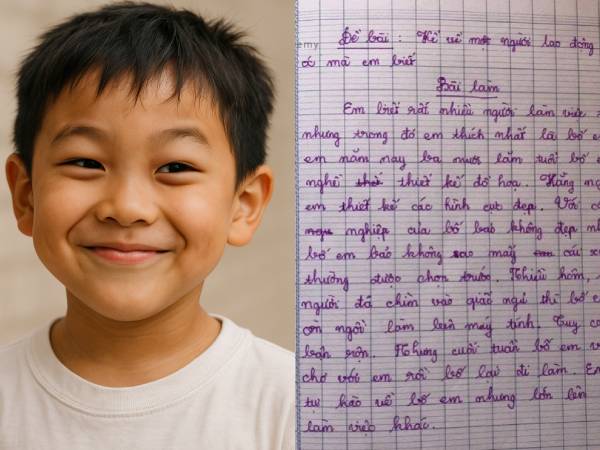 Đề bài : Kể về một người lao động
óc mà em biết
my
Bài làm
Em biết rất nhiều người làm việc
nhưng trong đó em thích nhất là bố
em năm nay ba mươi lăm tuổi bố
nghề thiết kế đồ họa. Hằng
em thiết kế các hình cực đẹp. Với
nghiệp của bố bảo không đẹp
bố em bảo không sao mấy cái
thường được chọn trước. Nhiều hôm,
người đã chìm vào giấc ngủ thì bố
còn ngồi làm bên máy tính. Tuy
bận rộn. Nhưng cuối tuần bố em
chơ với em rồi bố lại đi làm. Em
tự hào về bố em nhưng lớn lên
làm việc khác.